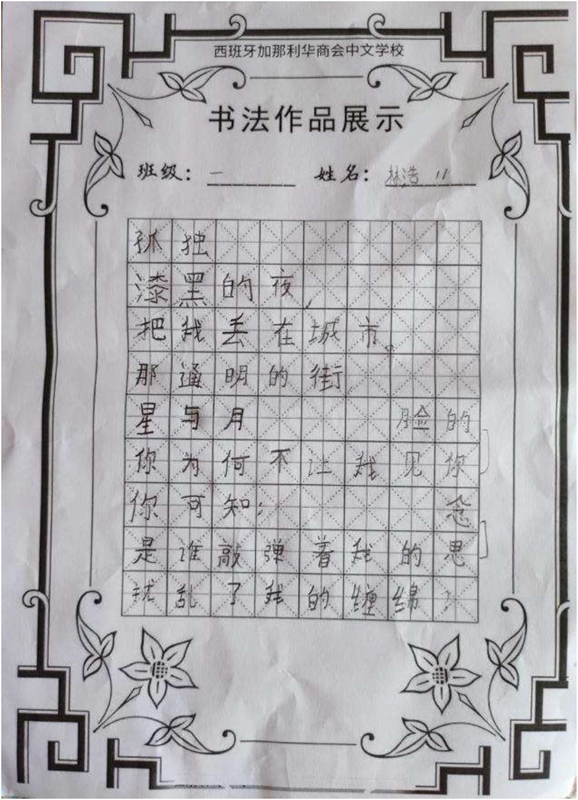 西班牙加那利华商会中文学校
书法作品展示
班级：一 姓名：林浩 11
孤独
漆黑的夜，
把我丢在城市。
那通明的街
星与月 脸的
你为何不让我见你
你可知： 念
是谁敲弹着我的思
扰乱了我的缠绵